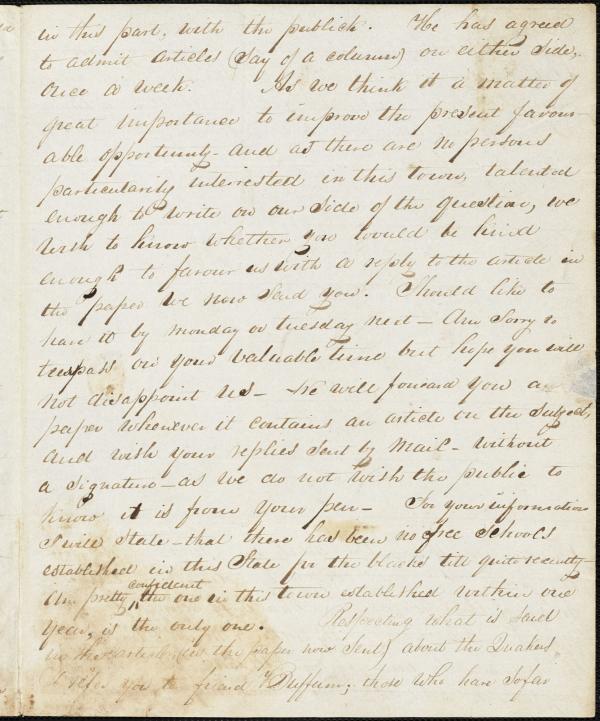 in this part, with the publick. He has agreed
to admit articles (say of a column) on either side,
once a week. As we think it a matter of
great importance to improve the present favour-
able opportunity - and as there are no persons
particularily interrested in this town, talented
enough to write on our side of the question, we
wish to know whether you would be kind
enough to favour us with a reply to the article in
the paper we now send you. Should like to
have it by monday or tuesday next - Am sorry to
trespass on your valuable time but hope you will
not disappoint us - We will forward you a
paper whenever it contains an article on the subject,
and wish your replies sent by mail - without
a signature - as we do not wish the public to
know it is from your pen - For your information
I will state - that there has been no free schools
established in this State for the blacks till quite recently -
confident
Am pretty ^ the one in this town established within one
year, is the only one. Respecting what is said
in the article (in the paper now sent) about the Quakers
I refer you to friend Buffum; those who have so far